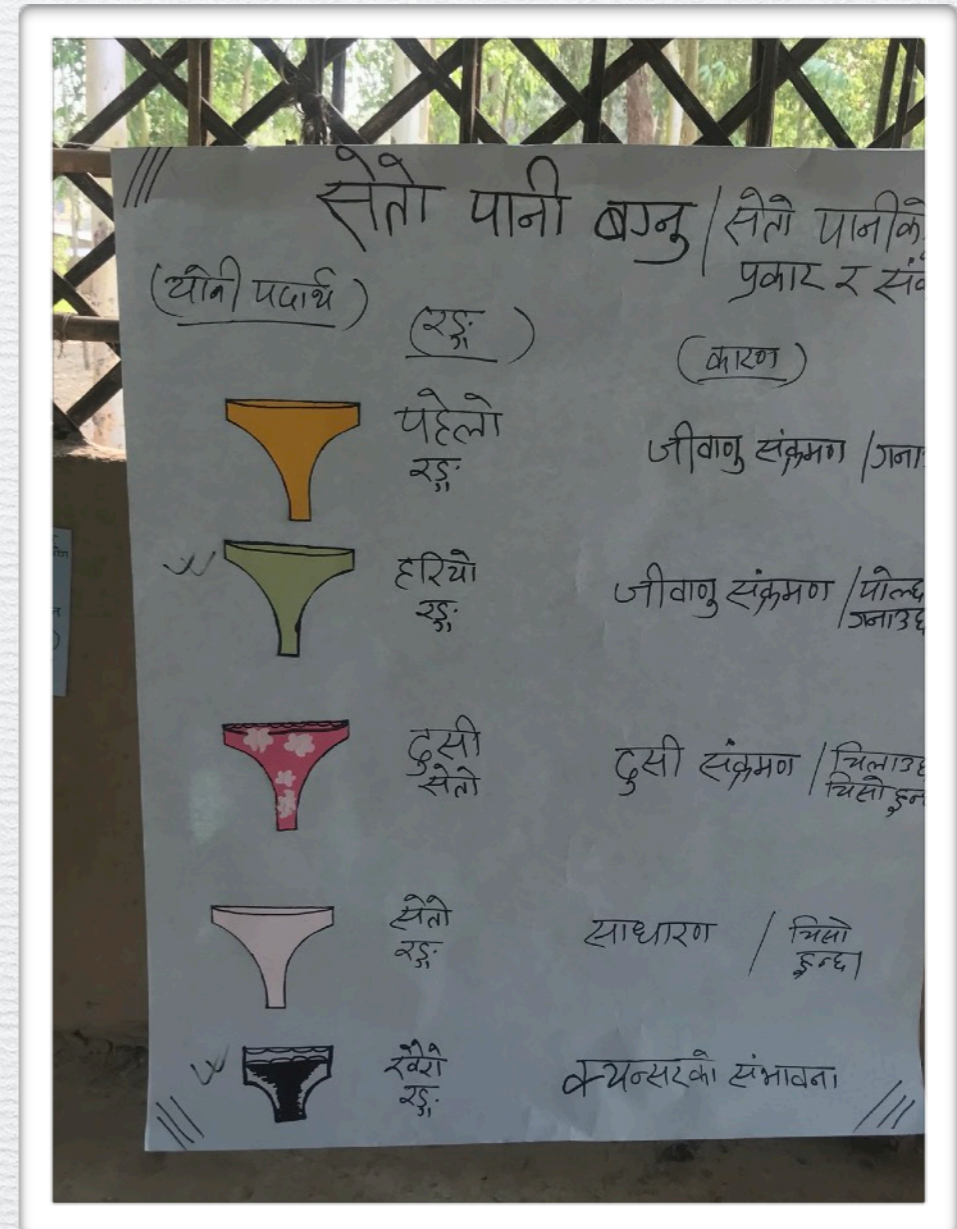 सेतो पानी बग्नु / सेतो पानीको
प्रकार र
(योनी पदार्थ)
(रङ्ग)
(कारण)
पहेलो
रङ्ग
जीवाणु संक्रमण / गना
हरियो
रङ्ग
जीवाणु संक्रमण / पोल्छ
गनाउछ
ढुसी
सेतो
ढुसी संक्रमण / चिलाउछ
चिसो हुन
सेतो
रङ्ग
साधारण / चिसो
हुन्छ।
खैरो
रङ्ग
क्यन्सरको संभावना